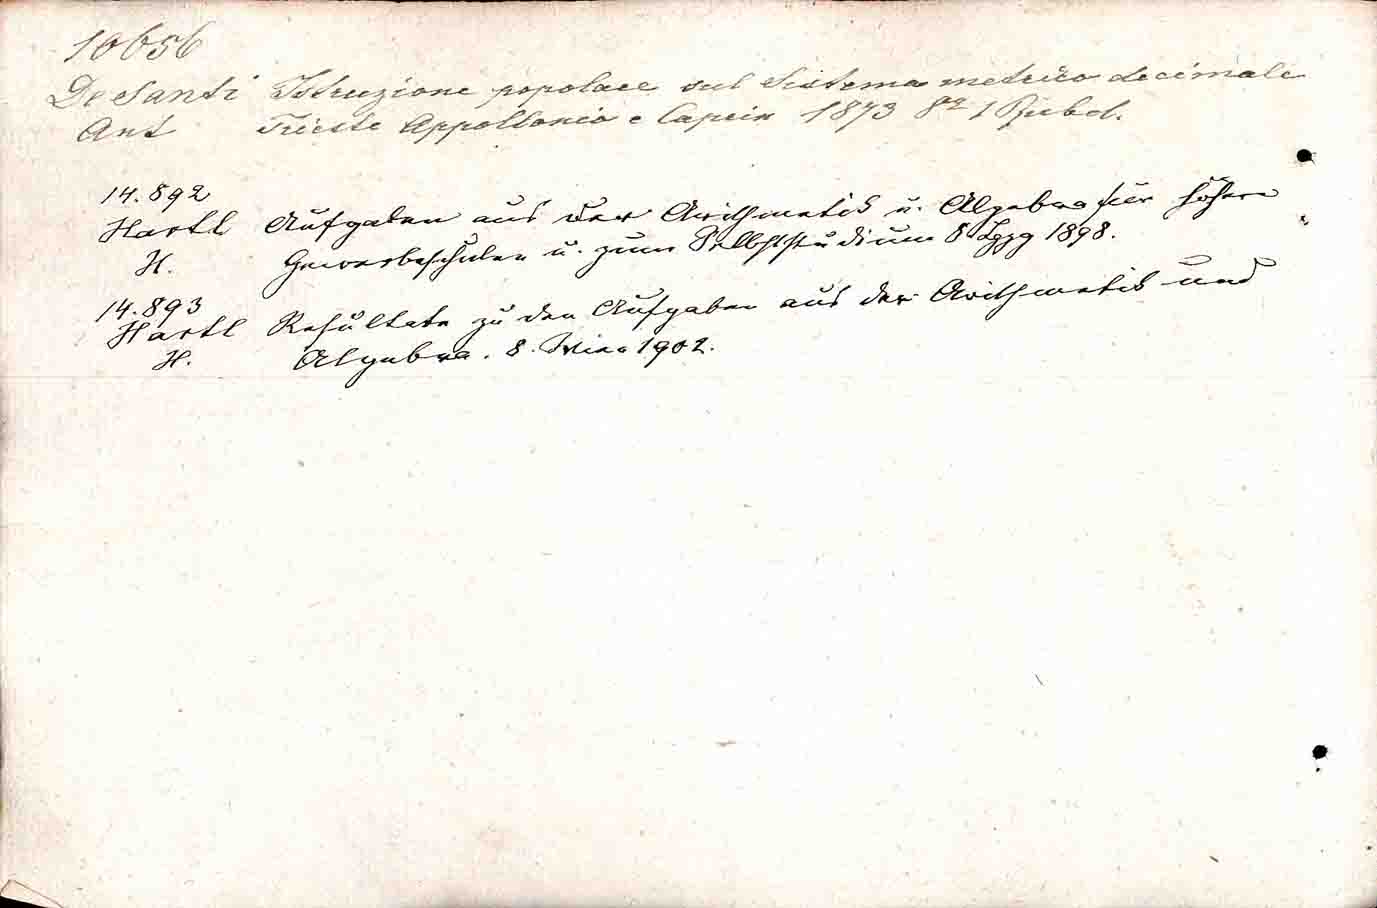 10656
De Santi Istruzione popolare sul Sistema metrico decimale
Ant Trieste Appollonio e Caprin 1873 8º 1
14.892
Hartl Aufgaben aus der Arithmetik u. Algebra für höhere
H. Gewerbeschulen u. zum Selbststudium 8 Lpzg 1898.
14.893
Hartl Resultate zu den Aufgaben aus der Arithmetik und
H. Algebra. 8. Wien 1902.